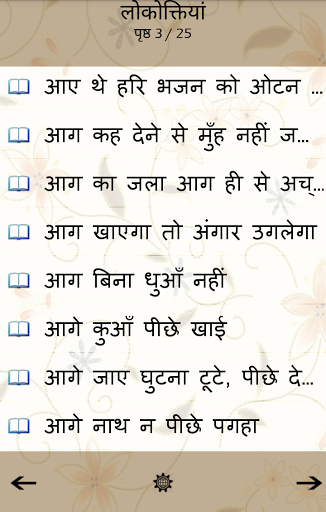 लोकोक्तियां
पृष्ठ 3 / 25
आए थे हरि भजन को ओटन ...
आग कह देने से मुँह नहीं ज...
आग का जला आग ही से अच्...
आग खाएगा तो अंगार उगलेगा
आग बिना धुआँ नहीं
आगे कुआँ पीछे खाई
आगे जाए घुटना टूटे, पीछे दे...
आगे नाथ न पीछे पगहा